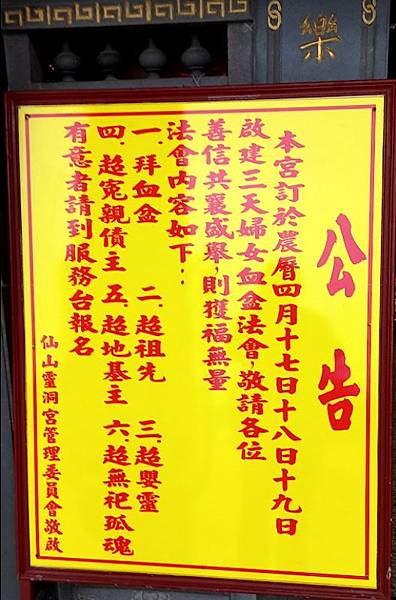 樂
公告
本宮訂於農曆四月十七日十八日十九日
啟建三天婦女血盆法會，敬請各位
善信共襄盛舉，則獲福無量
法會內容如下：
一、拜血盆　二、超祖先　三、超嬰靈
四、超冤親債主　五、超地基主　六、超無祀孤魂
有意者請到服務台報名
仙山靈洞宮管理委員會敬啟